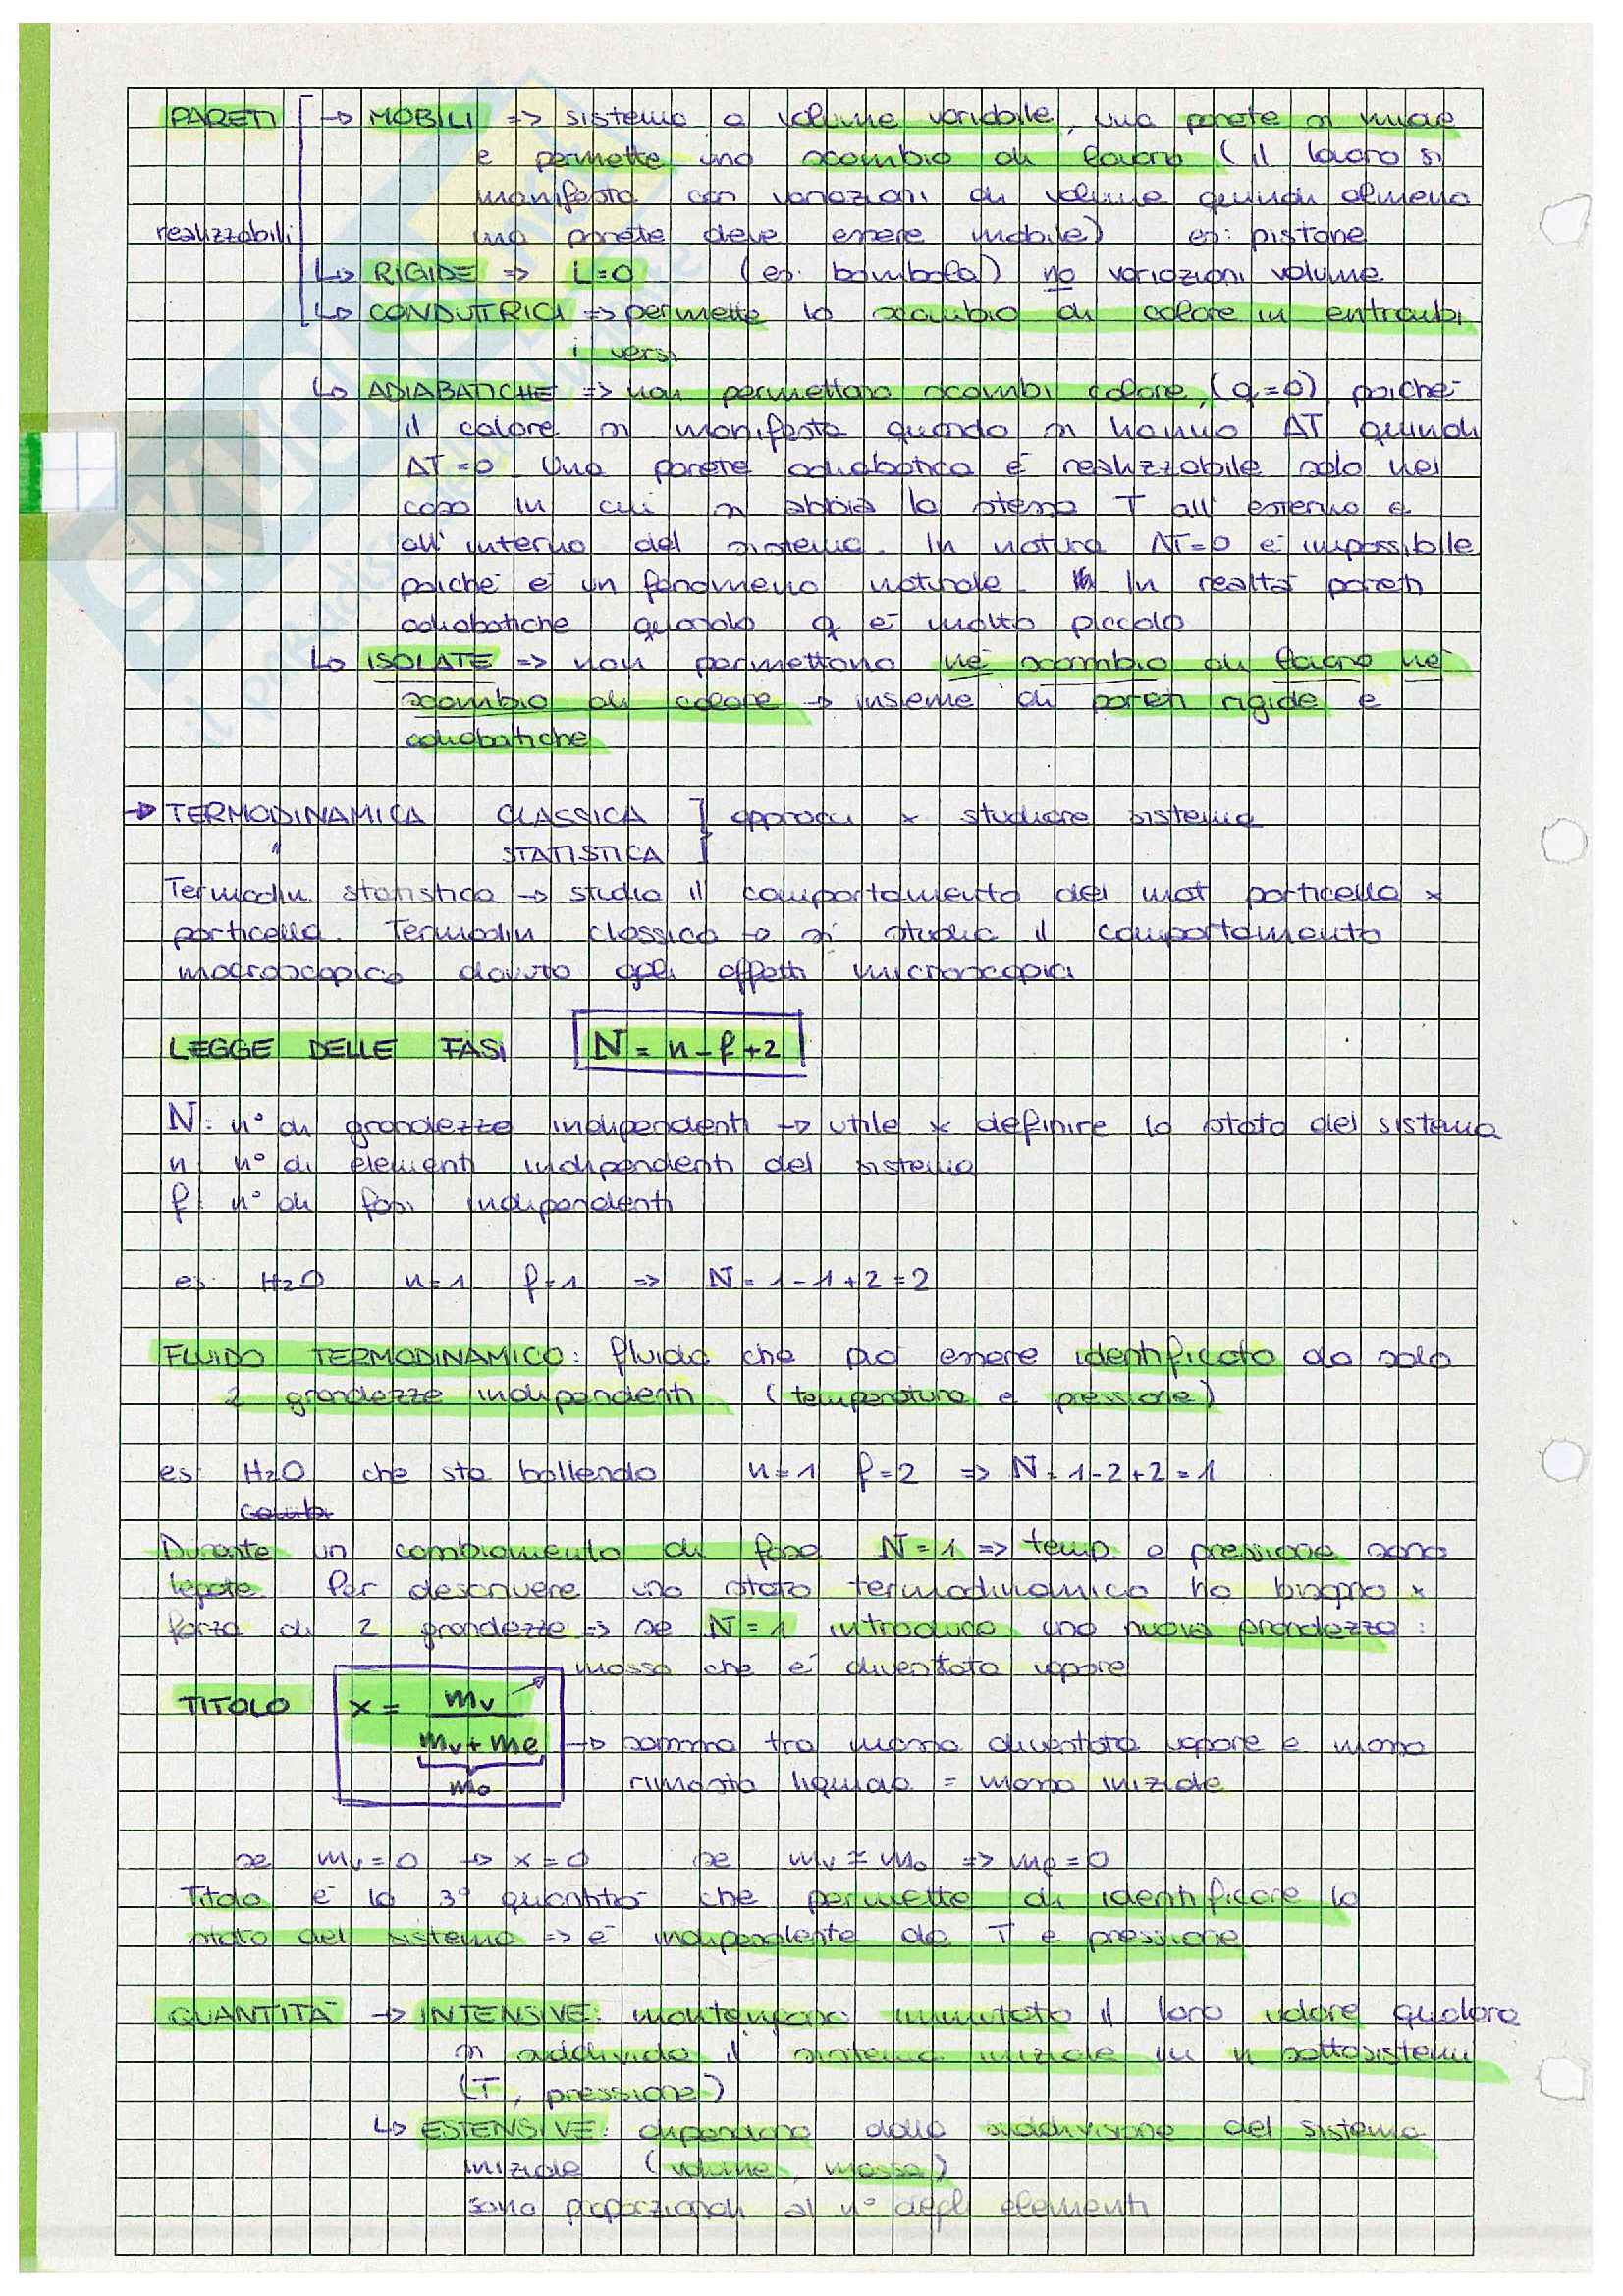 PARETI → MOBILI => sistema a volume variabile, una parete si muove
e permette uno scambio di lavoro (il lavoro si
manifesta con variazioni di volume quindi almeno
realizzabili una parete deve essere mobile) es: pistone
↳ RIGIDE => L=0 (es: bombola) no variazioni volume
↳ CONDUTTRICI => permette lo scambio di calore in entrambi
i versi
↳ ADIABATICHE => non permettono scambi calore, (q=0) poiché
il calore si manifesta quando si hanno ΔT quindi
ΔT=0 Una parete adiabatica è realizzabile solo nel
caso in cui si abbia la stessa T all'esterno e
all'interno del sistema. In natura ΔT=0 è impossibile
poiché è un fenomeno naturale. In realtà pareti
adiabatiche quando q è molto piccolo
↳ ISOLATE => non permettono né scambio di lavoro né
scambio di calore → insieme di pareti rigide e
adiabatiche
→ TERMODINAMICA CLASSICA } approcci x studiare sistema
" STATISTICA
Termodin statistica → studia il comportamento del mat particella x
particella. Termodin classica → si studia il comportamento
macroscopico dovuto agli effetti microscopici
LEGGE DELLE FASI N = n - f + 2
N: n° di grandezze indipendenti → utile x definire lo stato del sistema
n: n° di elementi indipendenti del sistema
f: n° di fasi indipendenti
es: H2O n=1 f=1 => N=1-1+2=2
FLUIDO TERMODINAMICO: fluido che può essere identificato da solo
2 grandezze indipendenti (temperatura e pressione)
es: H2O che sta bollendo n=1 f=2 => N=1-2+2=1
Durante un cambiamento di fase N=1 => temp. e pressione sono
legate. Per descrivere uno stato termodinamico ho bisogno x
forza di 2 grandezze => se N=1 introduco una nuova grandezza:
massa che è diventata vapore
TITOLO x = mv
mv + me → somma tra massa diventata vapore e massa
mo rimasta liquida = massa iniziale
se mv=0 → x=0 se mv=mo => me=0
Titolo è la 3° quantità che permette di identificare lo
stato del sistema => è indipendente da T e pressione
QUANTITÀ → INTENSIVE: mantengono immutato il loro valore qualora
si suddivida il sistema iniziale in n sottosistemi
(T, pressione)
↳ ESTENSIVE: dipendono dalla suddivisione del sistema
iniziale (volume, massa)
sono proporzionali al n° degli elementi